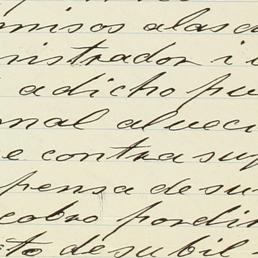 misos alas
nistrador i
a dicho pu
onal al veci
e contra su
pensa de su
cobro por din
to de su bil